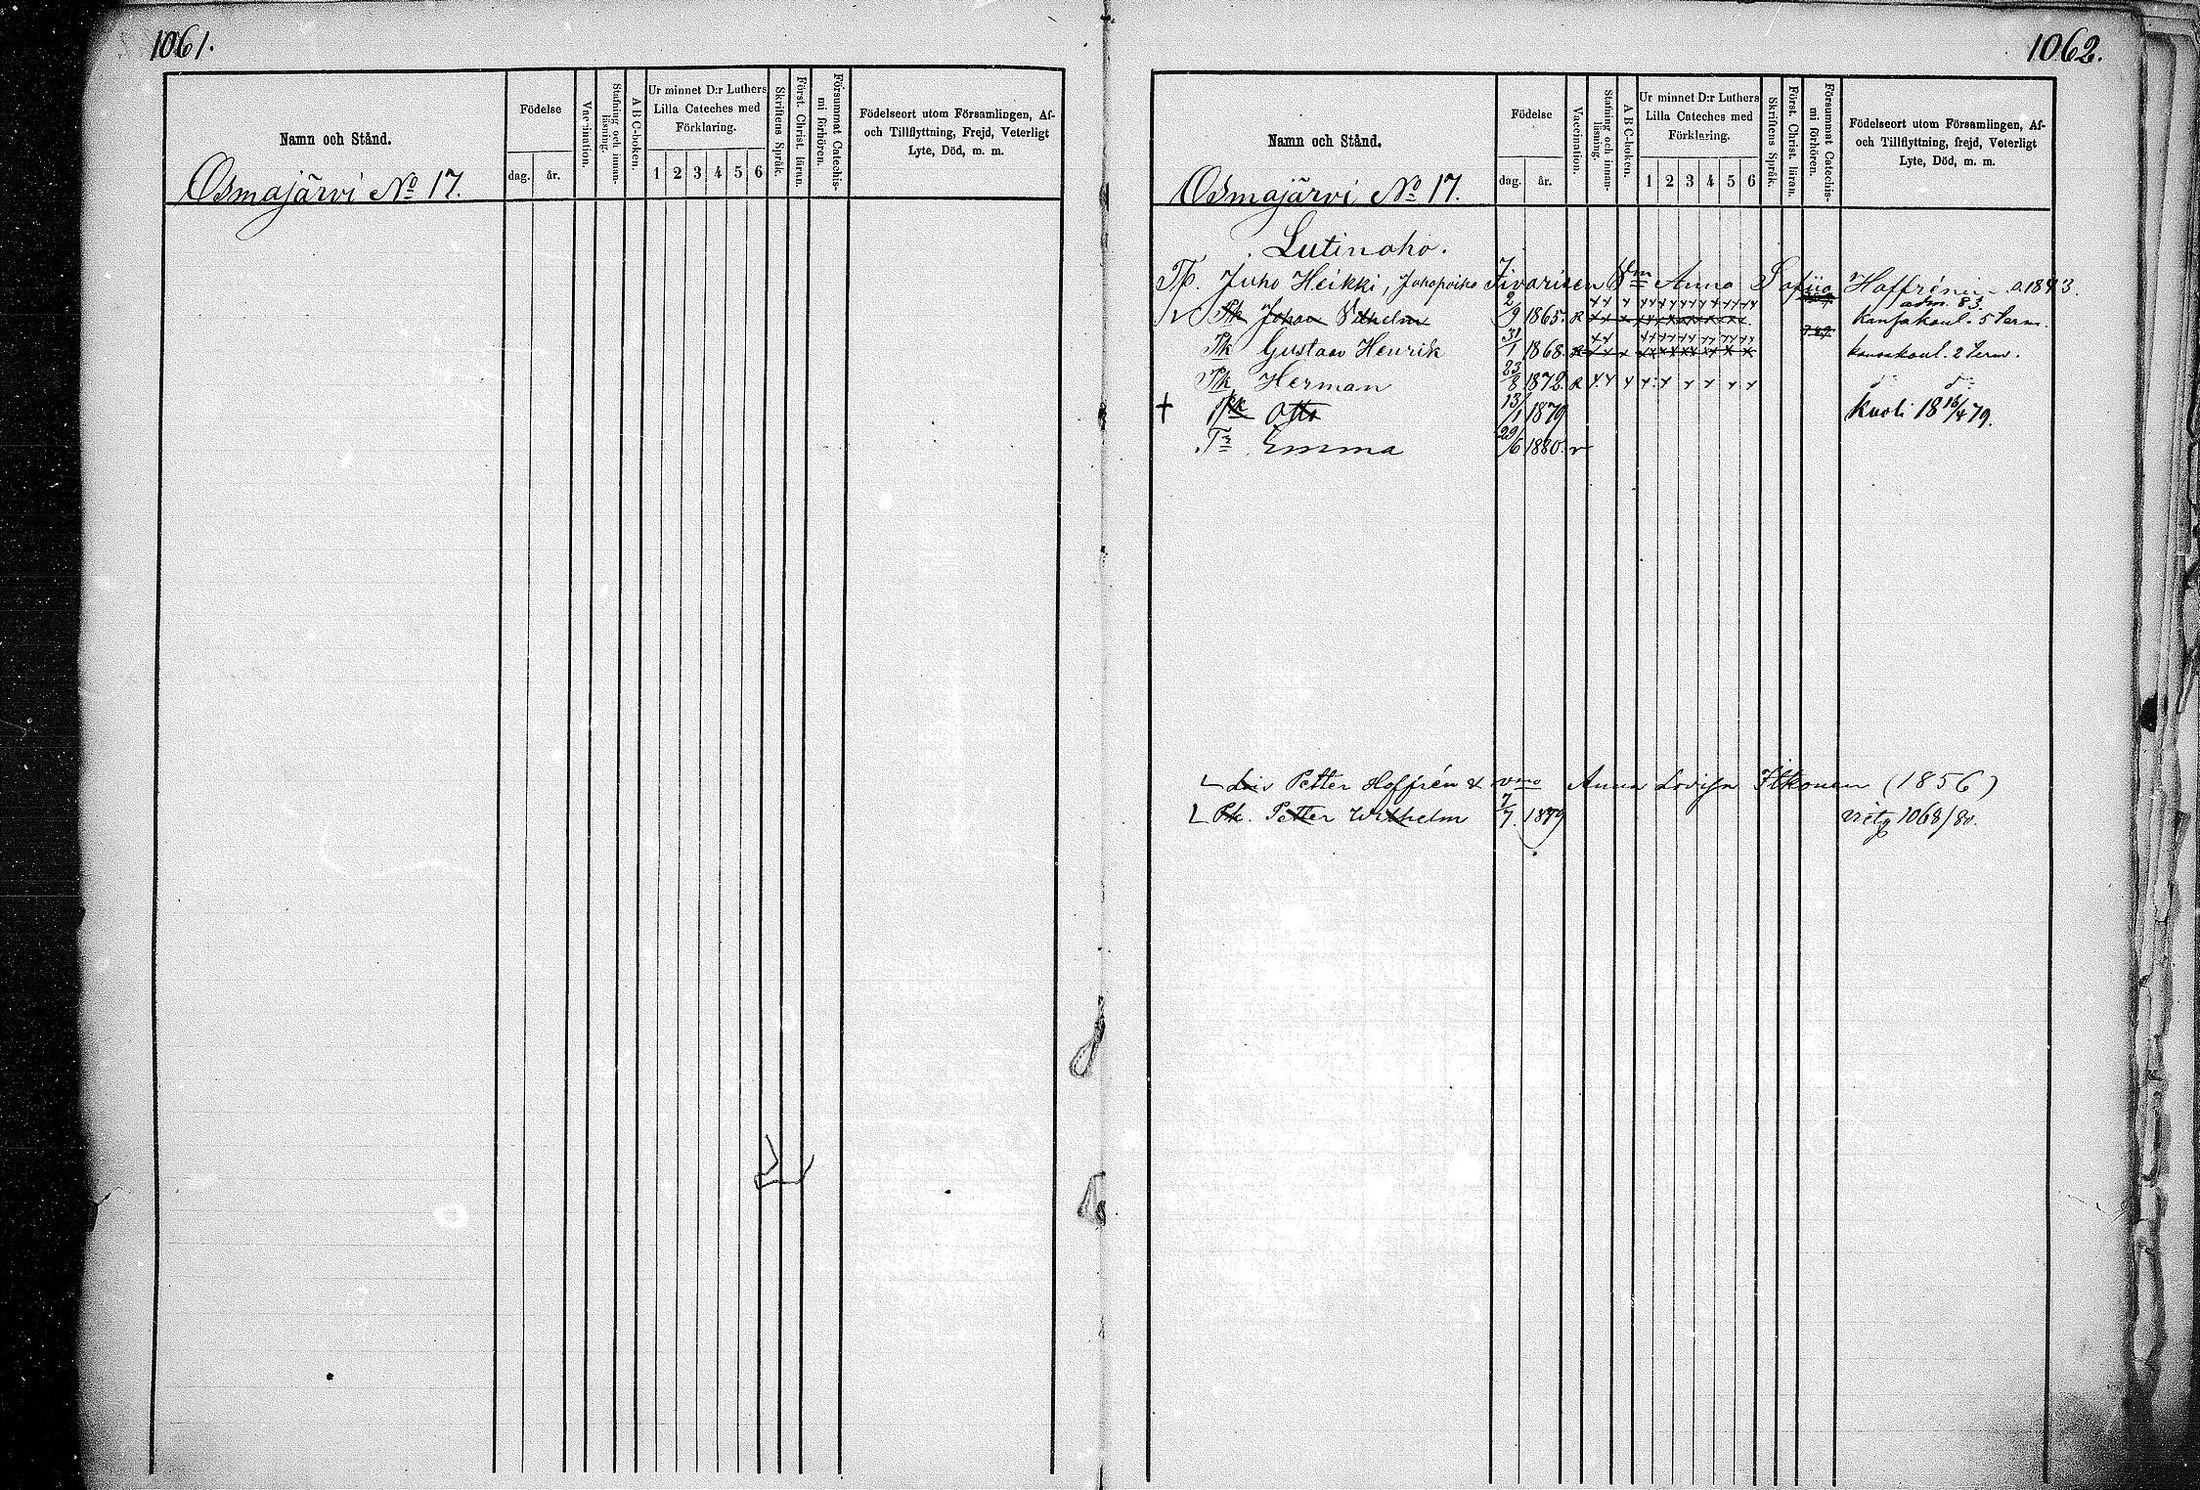 1061.
Namn och Stånd.
Födelse
dag. år.
Vaccination.
Stafning och innanläsning.
A B C-boken.
Ur minnet D:r Luthers Lilla Cateches med Förklaring.
1 2 3 4 5 6
Skriftens Språk.
Först. Christ. läran.
Försummat Catechismi förhören.
Födelseort utom Församlingen, Af- och Tillflyttning, Frejd, Veterligt Lyte, Död, m. m.
Osmajärvi No 17.
1062.
Namn och Stånd.
Födelse
dag. år.
Vaccination.
Stafning och innanläsning.
A B C-boken.
Ur minnet D:r Luthers Lilla Cateches med Förklaring.
1 2 3 4 5 6
Skriftens Språk.
Först. Christ. läran.
Försummat Catechismi förhören.
Födelseort utom Församlingen, Af- och Tillflyttning, frejd, Veterligt Lyte, Död, m. m.
Osmajärvi No 17.
Lutinaho.
Tp. Juho Heikki, Juhopoika Iivarisen Vm Anna Sofiia Hoffrénin
Pk Johan Vilhelm 2/9 1865. kansakoul. 5 term.
Pk Gustav Henrik 31/1 1868. kansakoul. 2 term.
Pk Herman 23/8 1872 do do
+ Pk Otto 13/1 1879 kuoli 18 16/4 79.
Tr Emma 29/6 1880. v
Petter Hoffrén & vmo Anna Lovisa Itkonen (1856)
Pk. Petter Wilhelm 7/7. 1879 viety 1068/80.